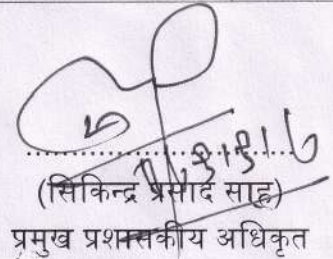 (सिकिन्द्र प्रसाद साह)
प्रमुख प्रशासकीय अधिकृत